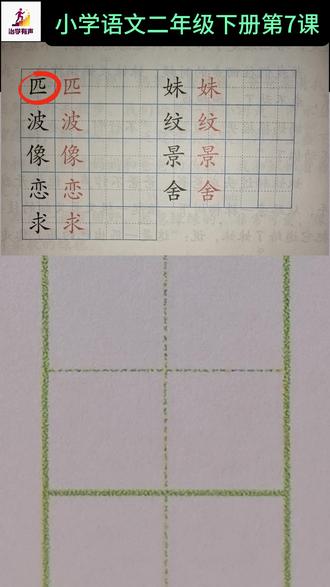 治学有声
小学语文二年级下册第7课
匹 匹 妹 妹
波 波 纹 纹
像 像 景 景
恋 恋 舍 舍
求 求